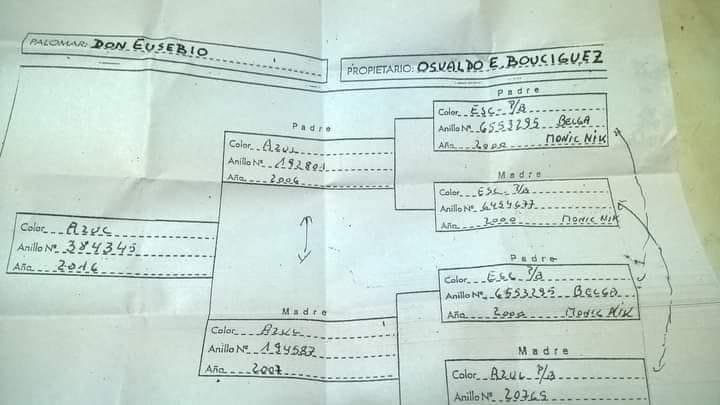 PALOMAR: DON EUSEBIO
PROPIETARIO: OSVALDO E. BOUCIGUEZ
Padre
Color ESC- P/A
Anillo Nº 6553295 BELGA
Año 2000 MONIC NIK
Padre
Color AZUL
Anillo Nº 192801
Año 2006
Madre
Color ESC- P/A
Anillo Nº 6454677
Año 2000 MONIC NIK
Color AZUL
Anillo Nº 384345
Año 2016
Padre
Color ESC P/A
Anillo Nº 6553295 BELGA
Año 2000 MONIC NIK
Madre
Color AZUL
Anillo Nº 194587
Año 2007
Madre
Color AZUL P/B
Anillo Nº 20765